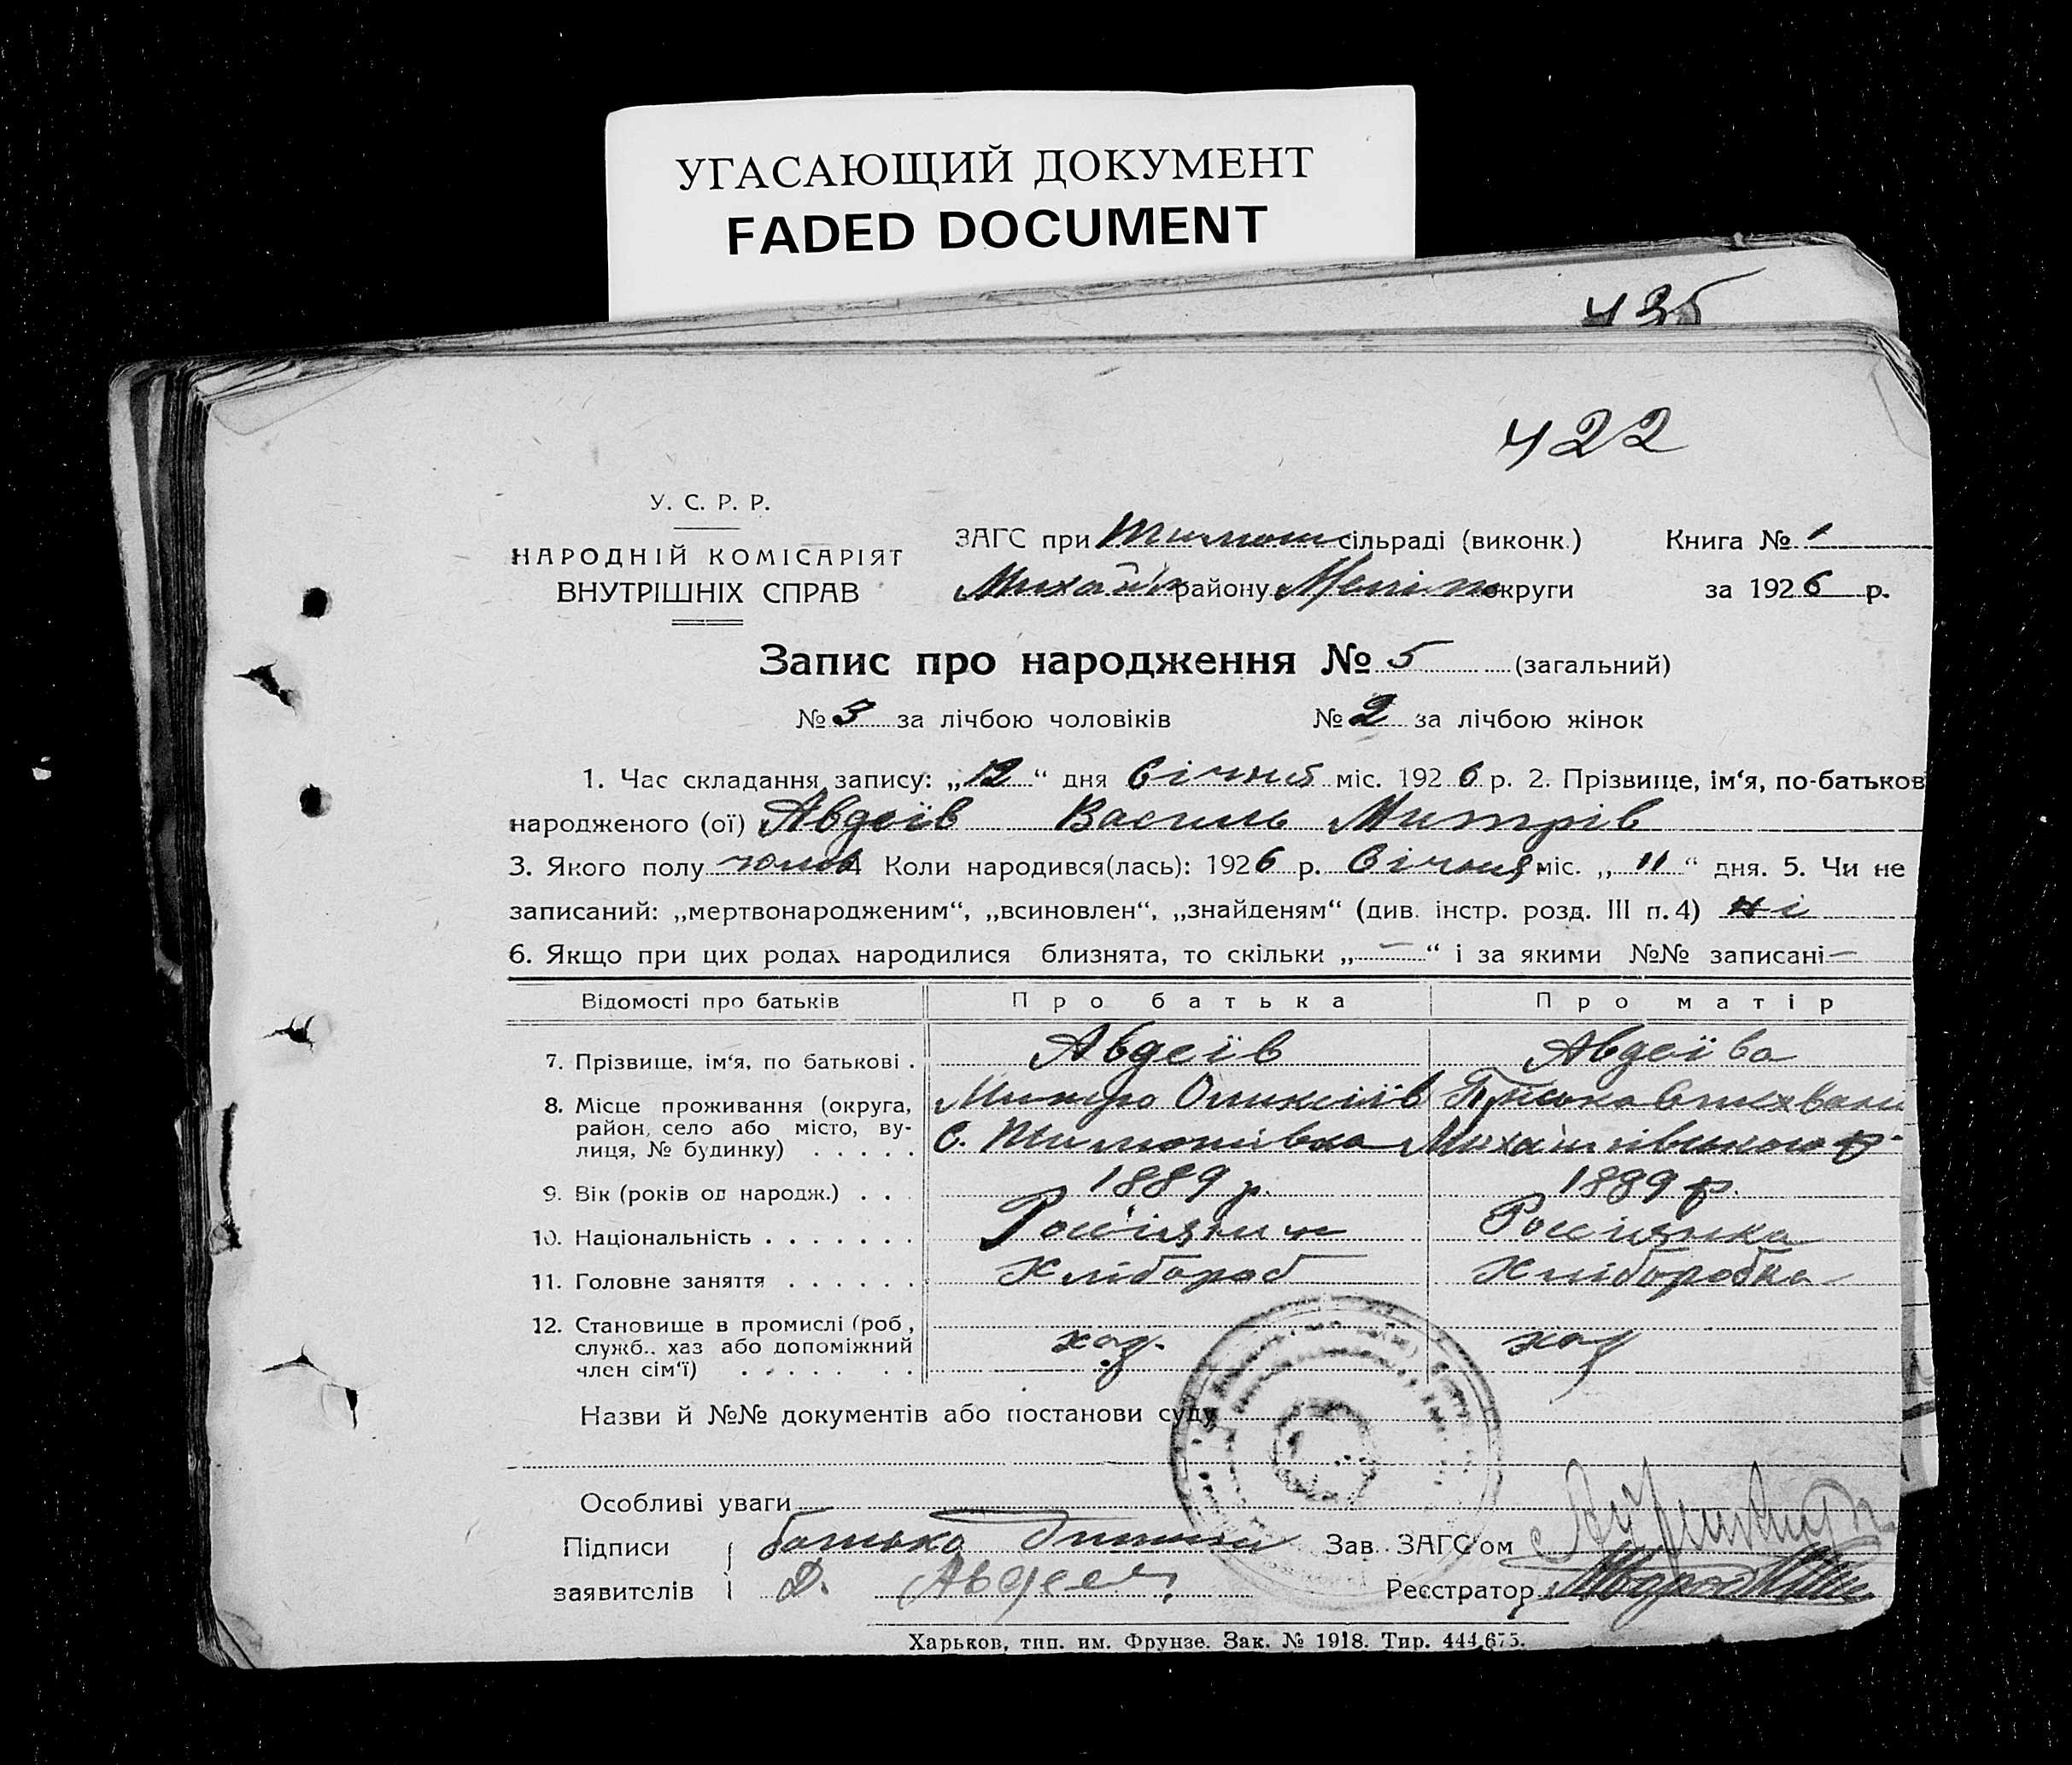 УГАСАЮЩИЙ ДОКУМЕНТ
FADED DOCUMENT
435
422
У. С. Р. Р.
НАРОДНІЙ КОМІСАРІЯТ
ВНУТРІШНІХ СПРАВ
ЗАГС при Тимош сільраді (виконк.) Книга № 1
Михайл району Меліт округи за 1926 р.
Запис про народження № 5 (загальний)
№ 3 за лічбою чоловіків № 2 за лічбою жінок
1. Час складання запису: „12“ дня Січня міс. 1926 р. 2. Прізвище, ім‘я, по-батьков
народженого (ої) Авдеїв Василь Митрів
3. Якого полу чолов 4 Коли народився(лась): 1926 р. Січня міс. „11“ дня. 5. Чи не
записаний: „мертвонародженим“, „всиновлен“, „знайденям“ (див. інстр. розд. III п. 4) ні
6. Якщо при цих родах народилися близнята, то скільки „—“ і за якими №№ записані —
Відомості про батьків Про батька Про матір
7. Прізвище, ім‘я, по батькові . Авдеїв Авдеїва
Митро
8. Місце проживання (округа,
район, село або місто, ву-
лиця, № будинку) . . . . . С. Тимошівка Михайлівського р.
9. Вік (років од народж.) . . 1889 р. 1889 р.
10. Національність . . . . . . . Россіянин Россіянка
11. Головне заняття . . . . . . Хлібороб Хліборобка
12. Становище в промислі (роб.,
служб., хаз або допоміжний
член сім‘ї) . . . . . . . хаз. хаз
Назви й №№ документів або постанови суду
Особливі уваги
Підписи батько дитини Зав. ЗАГС‘ом
заявителів Д. Авдеев Реєстратор
Харьков, тип. им. Фрунзе. Зак. № 1918. Тир. 444.675.